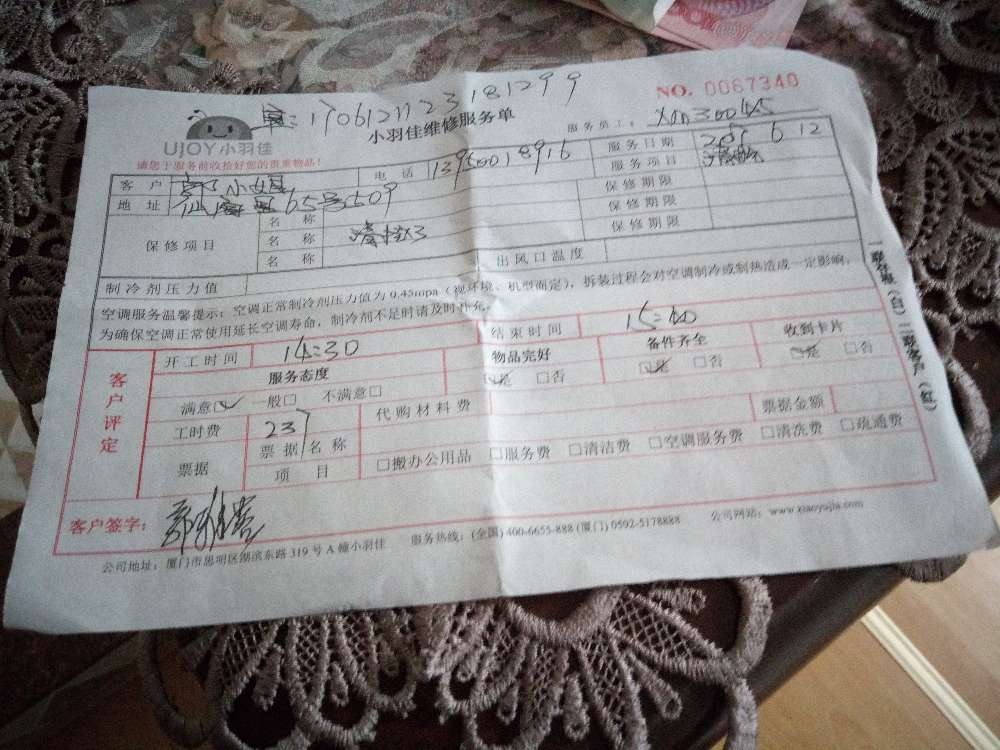 NO. 0067340
170612112318129 9
小羽佳维修服务单
UJOY小羽佳
服务员工: Xm30045
请您于服务前收拾好您的贵重物品!
客户 小姐 电话 服务日期 6 12
地址 65号509 服务项目
保修期限
保修项目 名称 保修期限
名称 保修期限
名称
出风口温度
制冷剂压力值
空调服务温馨提示: 空调正常制冷剂压力值为 0.45mpa (视环境、机型而定), 拆装过程会对空调制冷或制热造成一定影响,
为确保空调正常使用延长空调寿命, 制冷剂不足时请及时补充。
一联存根(白) 二联客户(红)
客户评定
开工时间 14:30 结束时间 15:40
服务态度 物品完好 备件齐全 收到卡片
满意□ 一般□ 不满意□ □是 □否 □是 □否 □是 □否
工时费 237 代购材料费 票据金额
票据 票据名称 □搬办公用品 □服务费 □清洁费 □空调服务费 □清洗费 □疏通费
项目
客户签字:
公司地址: 厦门市思明区湖滨东路 319 号 A 幢小羽佳 服务热线: (全国) 400-6655-888 (厦门) 0592-5178888 公司网站: www.xiaoyujia.com